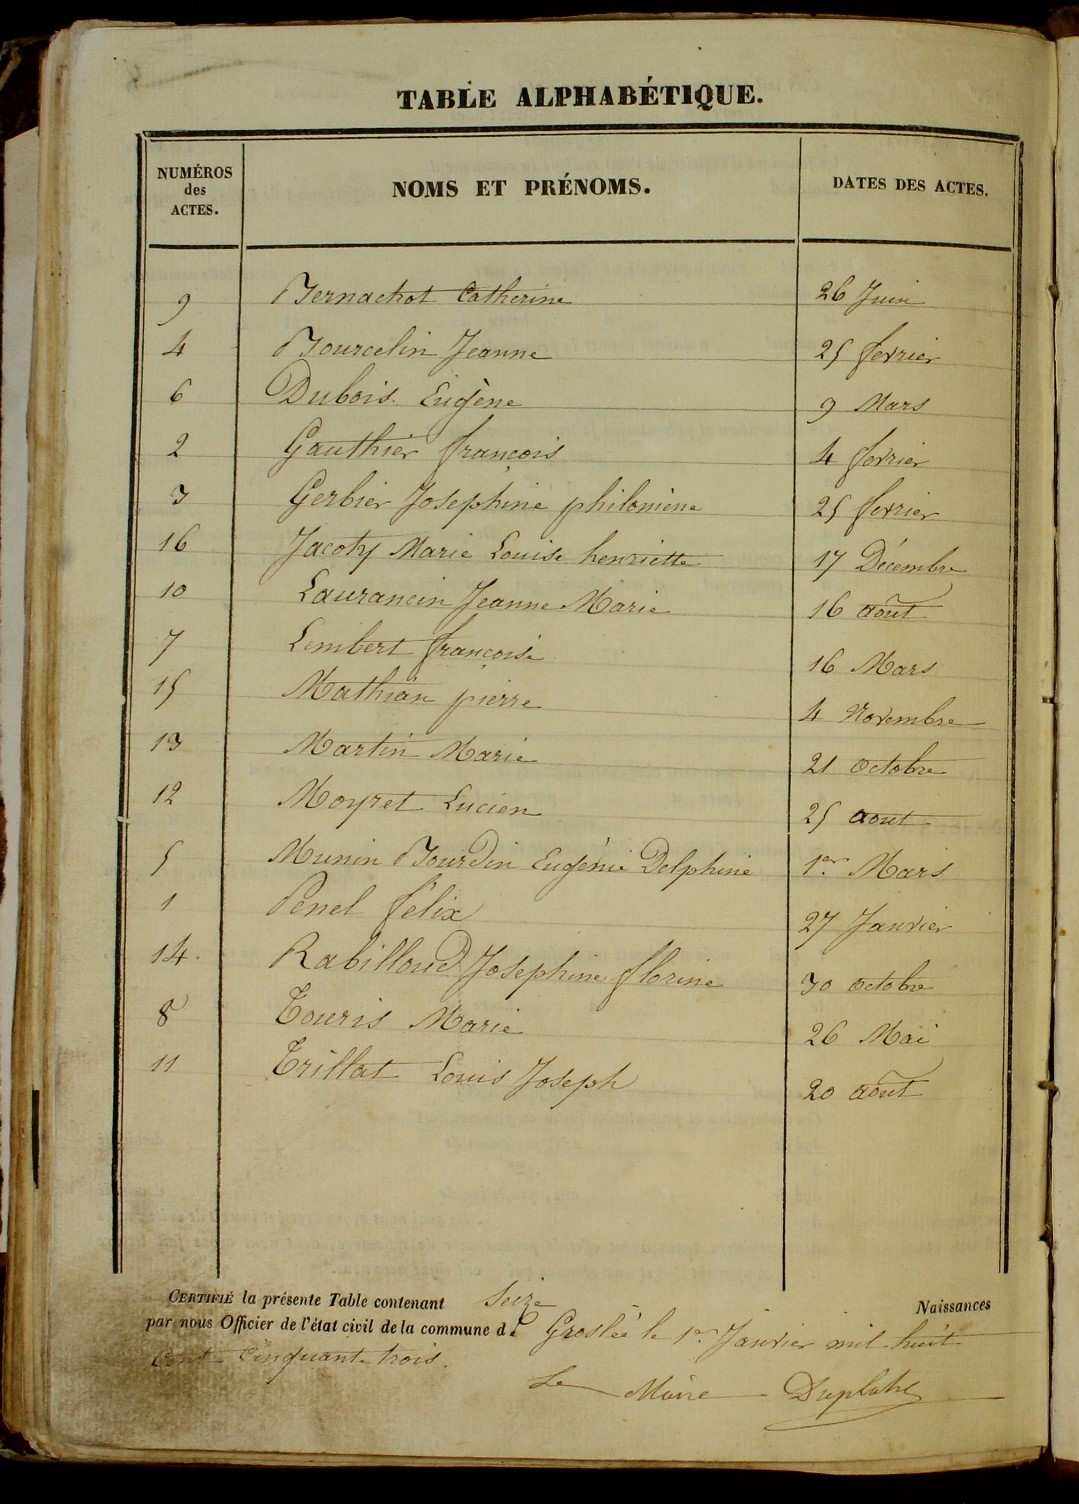 TABLE ALPHABÉTIQUE.
NUMÉROS des ACTES. NOMS ET PRÉNOMS. DATES DES ACTES.
9 Bernachot Catherine 26 Juin
4 Bourcelin Jeanne 25 fevrier
6 Dubois Eugène 9 Mars
2 Gauthier françois 4 fevrier
3 Gerbier Josephine philomène 25 fevrier
16 Jacoty Marie Louise henriette 17 Décembre
10 Laurancin Jeanne Marie 16 août
7 Lembert françoise 16 Mars
15 Mathian pierre 4 Novembre
13 Martin Marie 21 octobre
12 Moyret Lucien 25 aout
5 Munin Bourdin Eugénie Delphine 1er Mars
1 Penel félix 27 Janvier
14 Rabilloud Josephine florine 30 octobre
8 Touris Marie 26 Mai
11 Trillat Louis Joseph 20 août
CERTIFIÉ la présente Table contenant Seize Naissances
par nous Officier de l'état civil de la commune de Groslée le 1er Janvier mil huit
cent cinquante trois.
Le Maire